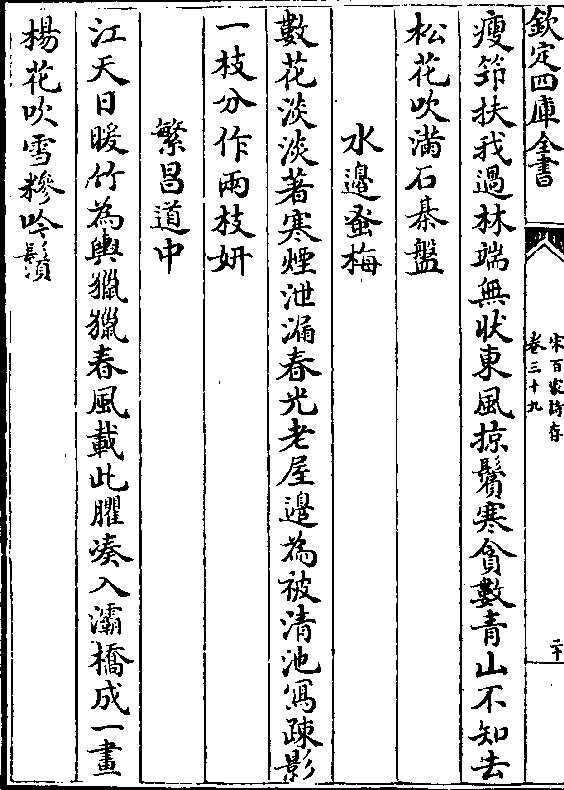 欽定四庫全書
宋百家詩存
卷三十九
二十
瘦筇扶我過林端無狀東風掠鬢寒貪數青山不知去
松花吹滿石棊盤
水邊蚤梅
數花淡淡著寒煙泄漏春光老屋邊為被清池寫疎影
一枝分作兩枝妍
繁昌道中
江天日暖竹為輿獵獵春風載此臞湊入灞橋成一畫
楊花吹雪糝吟鬚